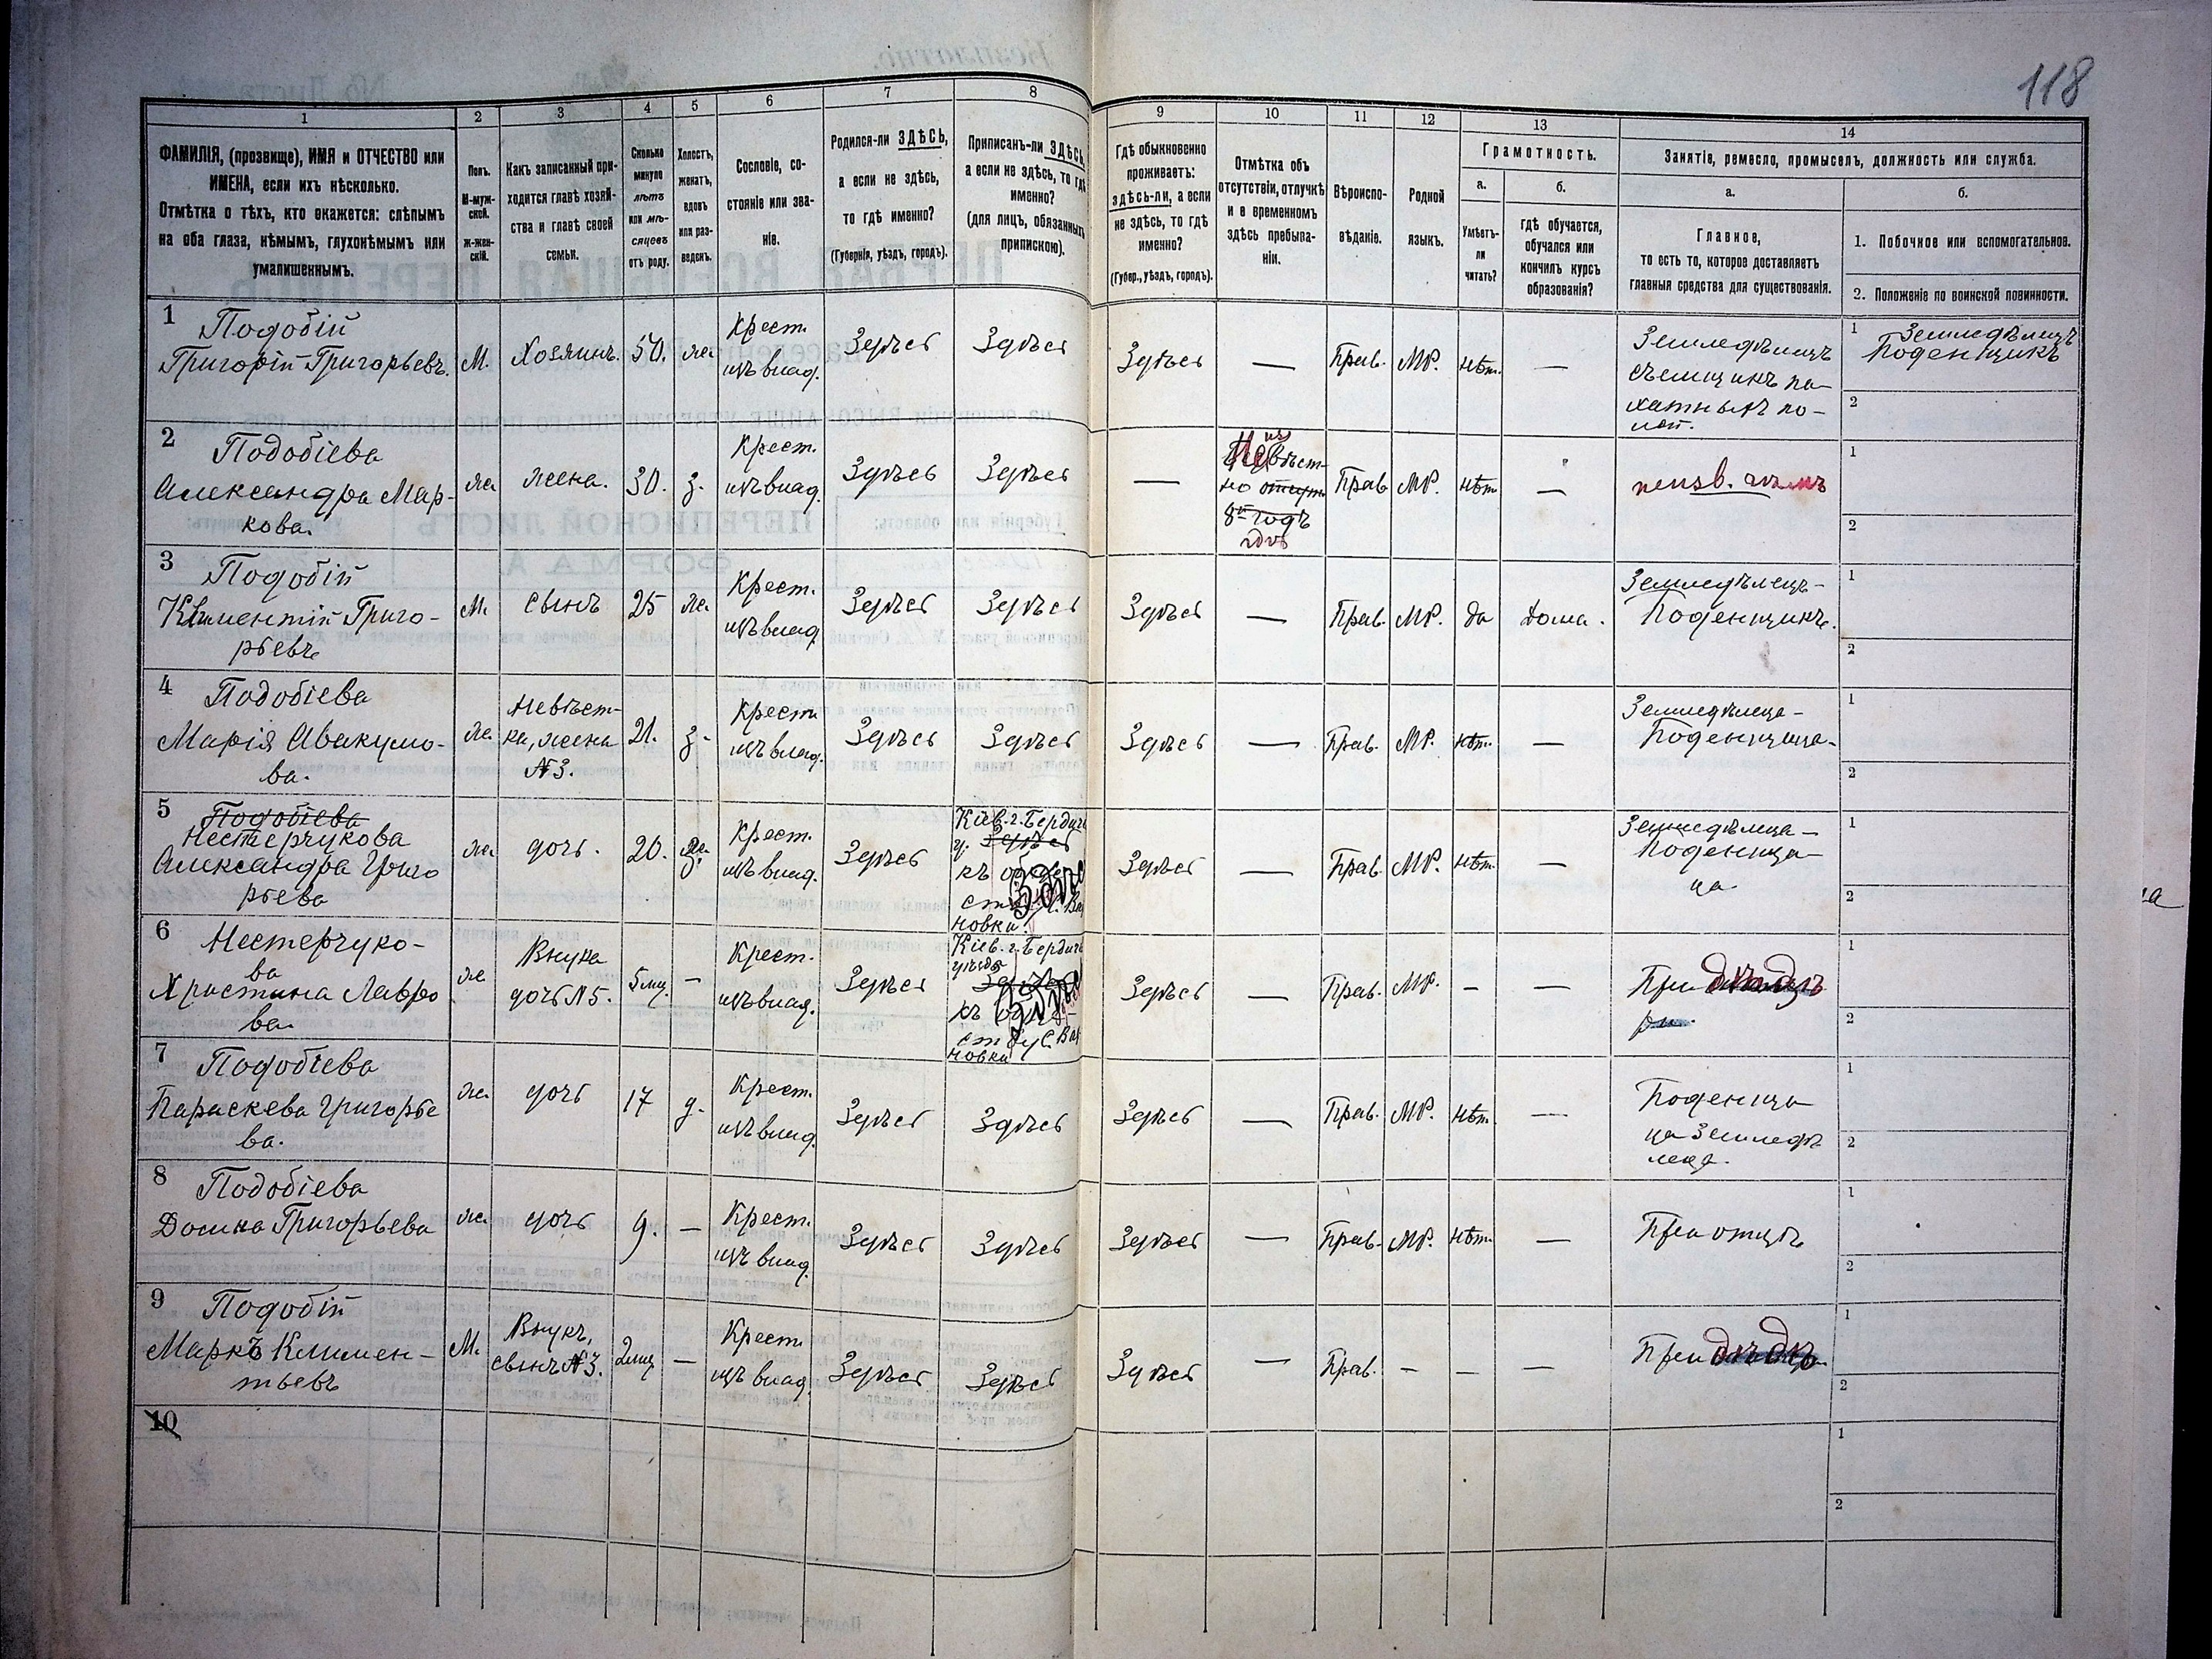 118
1
2
3
4
5
6
7
8
9
10
11
12
13
14
ФАМИЛІЯ, (прозвище), ИМЯ и ОТЧЕСТВО или
ИМЕНА, если ихъ нѣсколько.
Отмѣтка о тѣхъ, кто окажется: слѣпымъ
на оба глаза, нѣмымъ, глухонѣмымъ или
умалишеннымъ.
Полъ.
М-муж-
ской.
Ж-жен-
скій.
Какъ записанный при-
ходится главѣ хозяй-
ства и главѣ своей
семьи.
Сколько
минуло
лѣтъ
или мѣ-
сяцевъ
отъ роду.
Холостъ,
женатъ,
вдовъ
или раз-
веденъ.
Сословіе, со-
стояніе или зва-
ніе.
Родился-ли ЗДѢСЬ,
а если не здѣсь,
то гдѣ именно?
(Губернія, уѣздъ, городъ).
Приписанъ-ли ЗДѢСЬ,
а если не здѣсь, то гдѣ
именно?
(для лицъ, обязанныхъ
припискою).
Гдѣ обыкновенно
проживаетъ:
здѣсь-ли, а если
не здѣсь, то гдѣ
именно?
(Губер., уѣздъ, городъ).
Отмѣтка объ
отсутствіи, отлучкѣ
и о временномъ
здѣсь пребыва-
ніи.
Вѣроиспо-
вѣданіе.
Родной
языкъ.
Грамотность.
а.
Умѣетъ-
ли
читать?
б.
гдѣ обучается,
обучался или
кончилъ курсъ
образованія?
Занятіе, ремесло, промыселъ, должность или служба.
а.
Главное,
то есть то, которое доставляетъ
главныя средства для существованія.
б.
1. Побочное или вспомогательное.
2. Положеніе по воинской повинности.
1
Подобій
Григорій Григорьевъ.
М.
Хозяинъ.
50.
ж.
Крест.
изъ влад.
Здѣсь
Здѣсь
Здѣсь
—
Прав.
МР.
нѣт.
—
Земледѣлецъ
съемщикъ па-
хатныхъ по-
лей.
1 Земледѣлецъ
Поденщикъ
2
2
Подобіева
Александра Мар-
кова.
ж
жена.
30.
з.
Крест.
изъ влад.
Здѣсь
Здѣсь
—
Неизвѣст-
но отсут
8й годъ
гдѣ
Прав
МР.
нѣт
—
неизв. чѣмъ
1
2
3
Подобій
Климентій Григо-
рьевъ
М.
сынъ
25
ж.
Крест.
изъ влад.
Здѣсь
Здѣсь
Здѣсь
—
Прав.
МР.
да
дома.
Земледѣлецъ-
Поденщикъ.
1
2
4
Подобіева
Марія Авакумо-
ва.
ж.
невѣст-
ка, жена
№3.
21.
з.
Крест.
изъ влад.
Здѣсь
Здѣсь
Здѣсь
—
Прав.
МР.
нѣт.
—
Земледѣлица-
Поденщица-
1
2
5
Подобіева
Нестерчукова
Александра Григо
рьева
ж.
дочь.
20.
з.
Крест.
изъ влад.
Здѣсь
Кіев. г. Бердич
у. Здѣсь
новки.
Здѣсь
—
Прав.
МР.
нѣт.
—
Земледѣлица-
Поденщи-
ца
1
2
6
Нестерчуко-
ва
Христина Лавро
ва
ж
Внука
дочь №5.
5 мц.
-
Крест.
изъ влад.
Здѣсь
Кіев. г. Бердич
уѣзда
новки
Здѣсь
—
Прав.
МР.
-
—
При
1
2
7
Подобіева
Параскева Григорье
ва.
ж.
дочь
17
д.
Крест.
изъ влад.
Здѣсь
Здѣсь
Здѣсь
—
Прав.
МР.
нѣт.
—
Поденщи
ца Земледѣ
лица.
1
2
8
Подобіева
Домна Григорьева
ж.
дочь
9.
—
Крест.
изъ влад.
Здѣсь
Здѣсь
Здѣсь
—
Прав.
МР.
нѣт.
—
При отцѣ
1
2
9
Подобій
Маркъ Климен-
тьевъ
М.
Внукъ,
сынъ №3.
2 мц
—
Крест.
изъ влад.
Здѣсь
Здѣсь
Здѣсь
—
Прав.
-
—
—
При
1
2
10
1
2